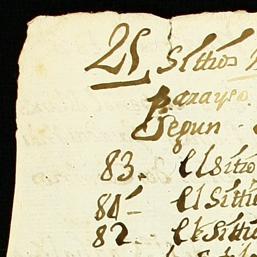 25 Sittios
parayso
Segun
83. El Sitio
84 - El Sitti
82 - El Sitti